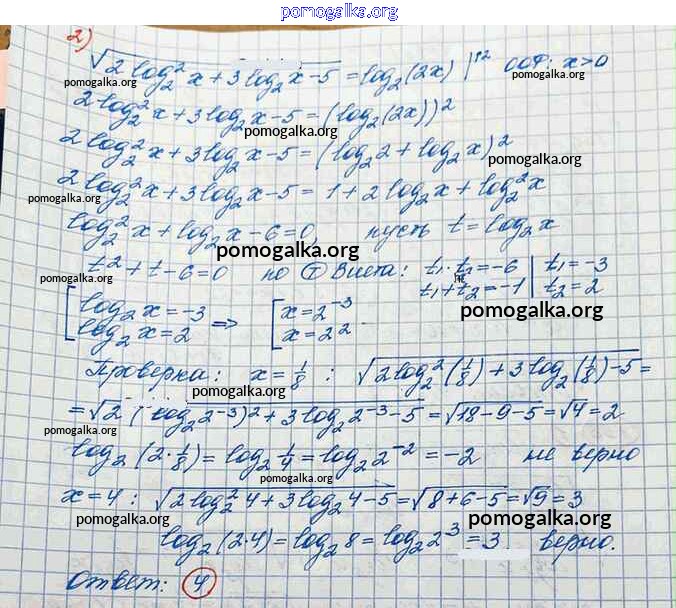 pomogalka.org
2) √2 log₂² x + 3 log₂ x - 5 = log₂ (2x) |↑² ООФ: x > 0
pomogalka.org pomogalka.org
2 log₂² x + 3 log₂ x - 5 = (log₂ (2x))²
pomogalka.org
2 log₂² x + 3 log₂ x - 5 = (log₂ 2 + log₂ x)²
pomogalka.org
2 log₂² x + 3 log₂ x - 5 = 1 + 2 log₂ x + log₂² x
pomogalka.org
log₂² x + log₂ x - 6 = 0, пусть t = log₂ x
pomogalka.org
t² + t - 6 = 0 по Т Виета: t₁ · t₂ = -6 | t₁ = -3
pomogalka.org
t₁ + t₂ = -1 | t₂ = 2
pomogalka.org
[ log₂ x = -3 => [ x = 2⁻³
log₂ x = 2 x = 2²
Проверка: x = 1/8 : √2 log₂² (1/8) + 3 log₂ (1/8) - 5 =
pomogalka.org
= √2 (log₂ 2⁻³)² + 3 log₂ 2⁻³ - 5 = √18 - 9 - 5 = √4 = 2
pomogalka.org
log₂ (2 · 1/8) = log₂ 1/4 = log₂ 2⁻² = -2 не верно
pomogalka.org
x = 4 : √2 log₂² 4 + 3 log₂ 4 - 5 = √8 + 6 - 5 = √9 = 3
pomogalka.org pomogalka.org
log₂ (2 · 4) = log₂ 8 = log₂ 2³ = 3 верно.
pomogalka.org
Ответ: 4
pomogalka.org pomogalka.org